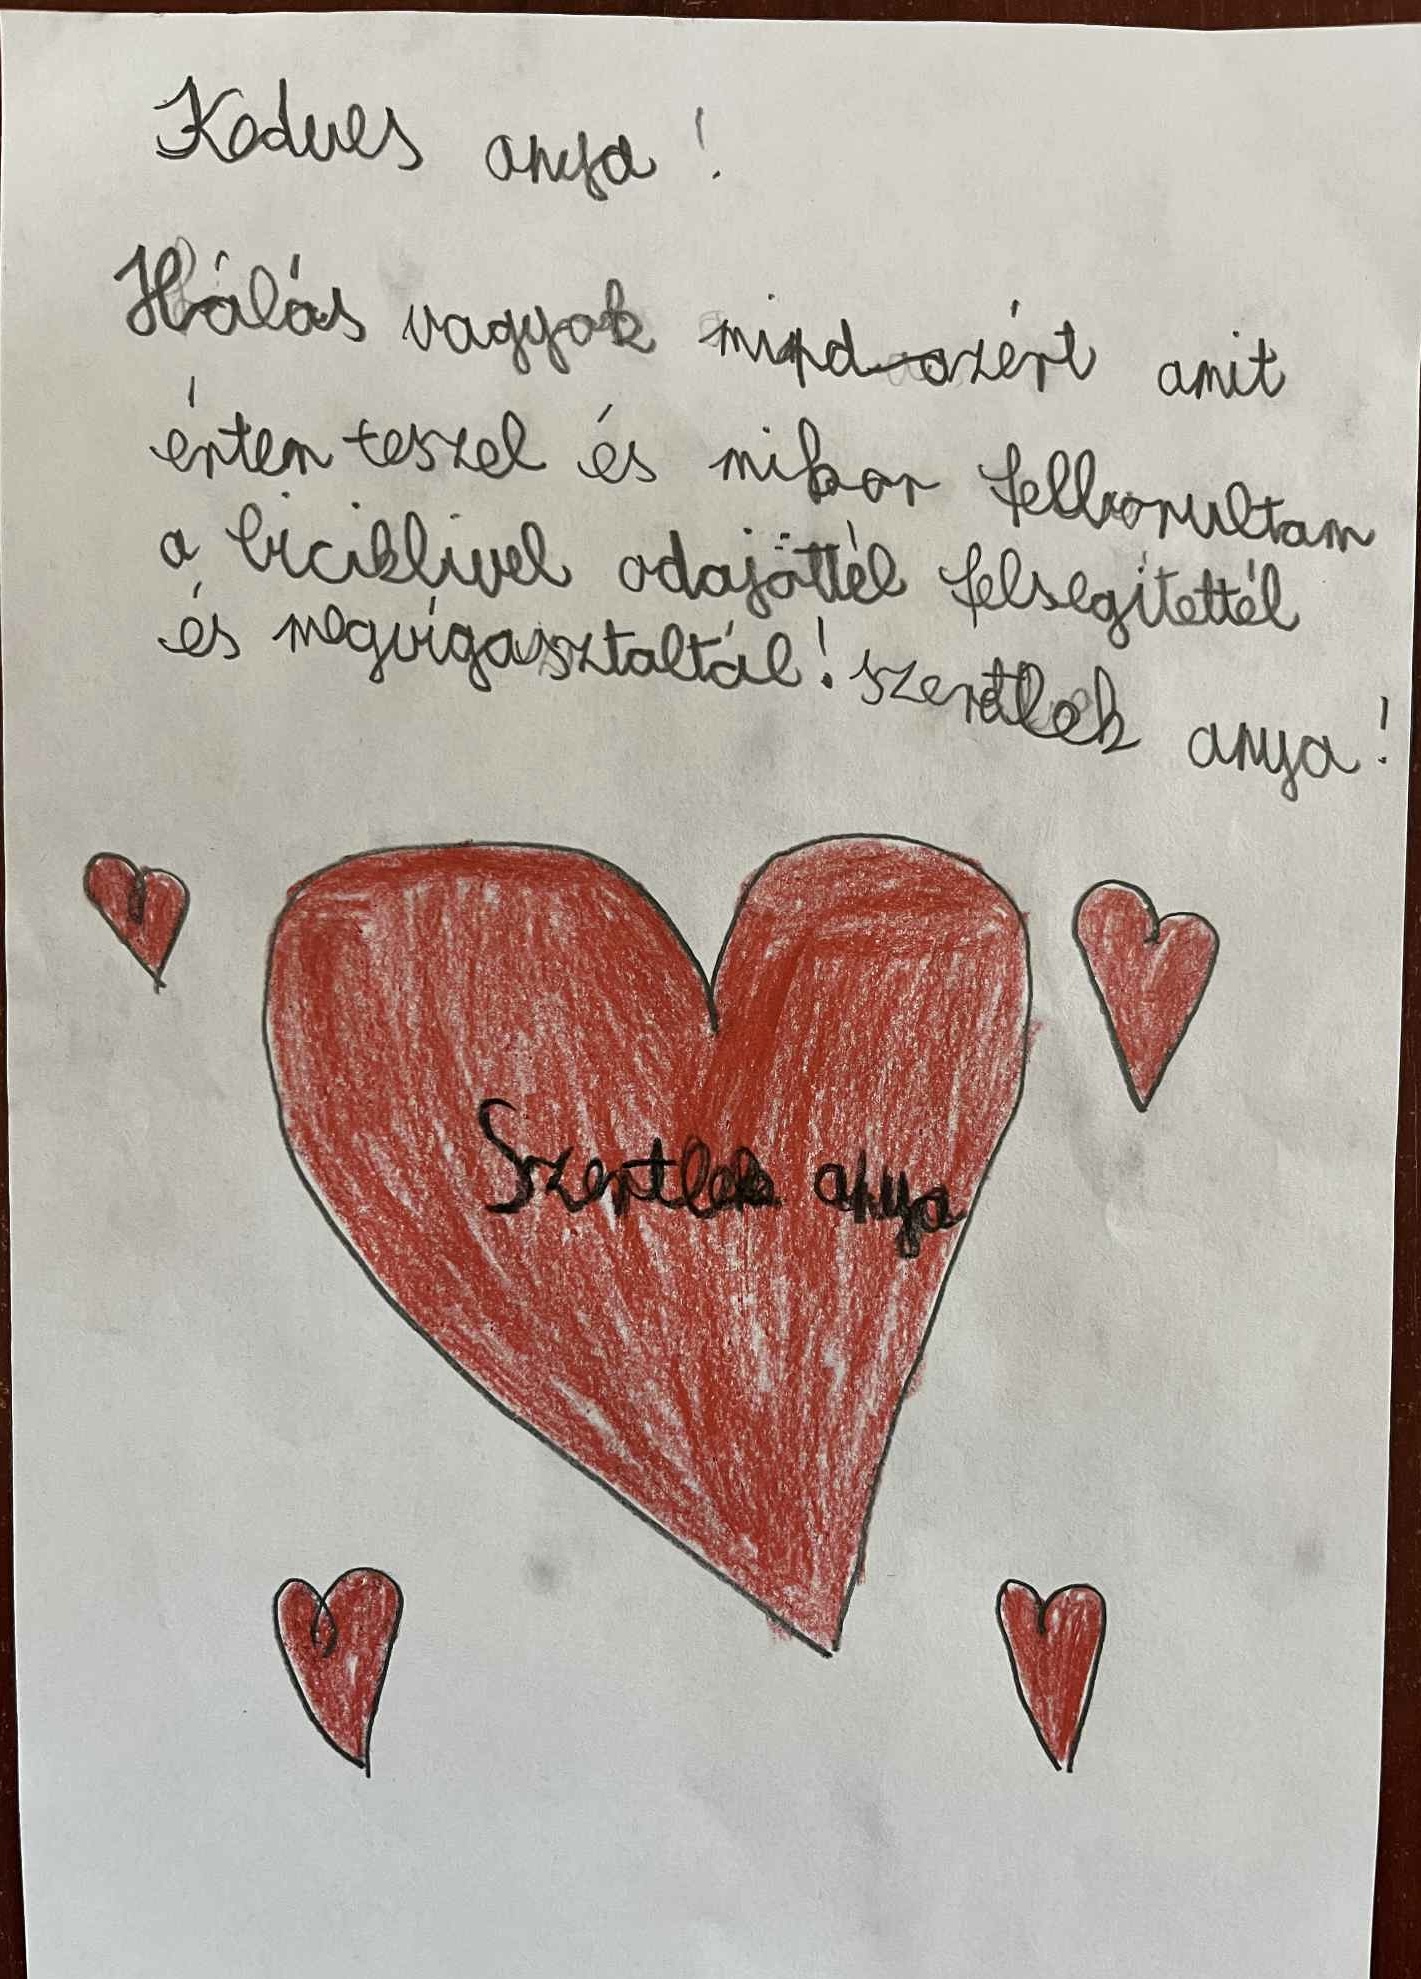 Kedves anya!
Hálás vagyok mind azért amit
értem teszel és mikor felborultam
a biciklivel odajöttél felsegítettél
és megvígasztaltál! szeretlek anya!
Szeretlek anya